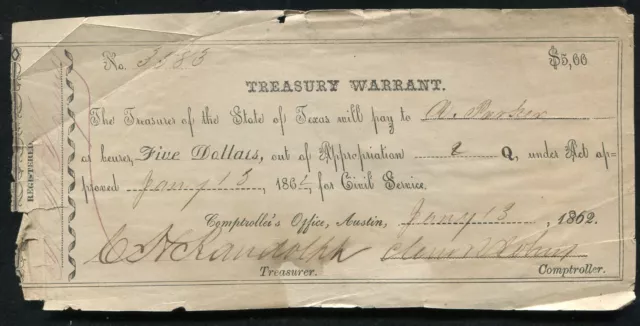 No. 3583 $5,00
TREASURY WARRANT.
The Treasurer of the State of Texas will pay to A. Parker
or bearer, Five Dollars, out of Appropriation Q, under Act ap-
proved Jany 13, 1862, for Civil Service.
Comptroller's Office, Austin, Jany 13, 1862.
C H Randolph
Treasurer. Comptroller.
REGISTERED